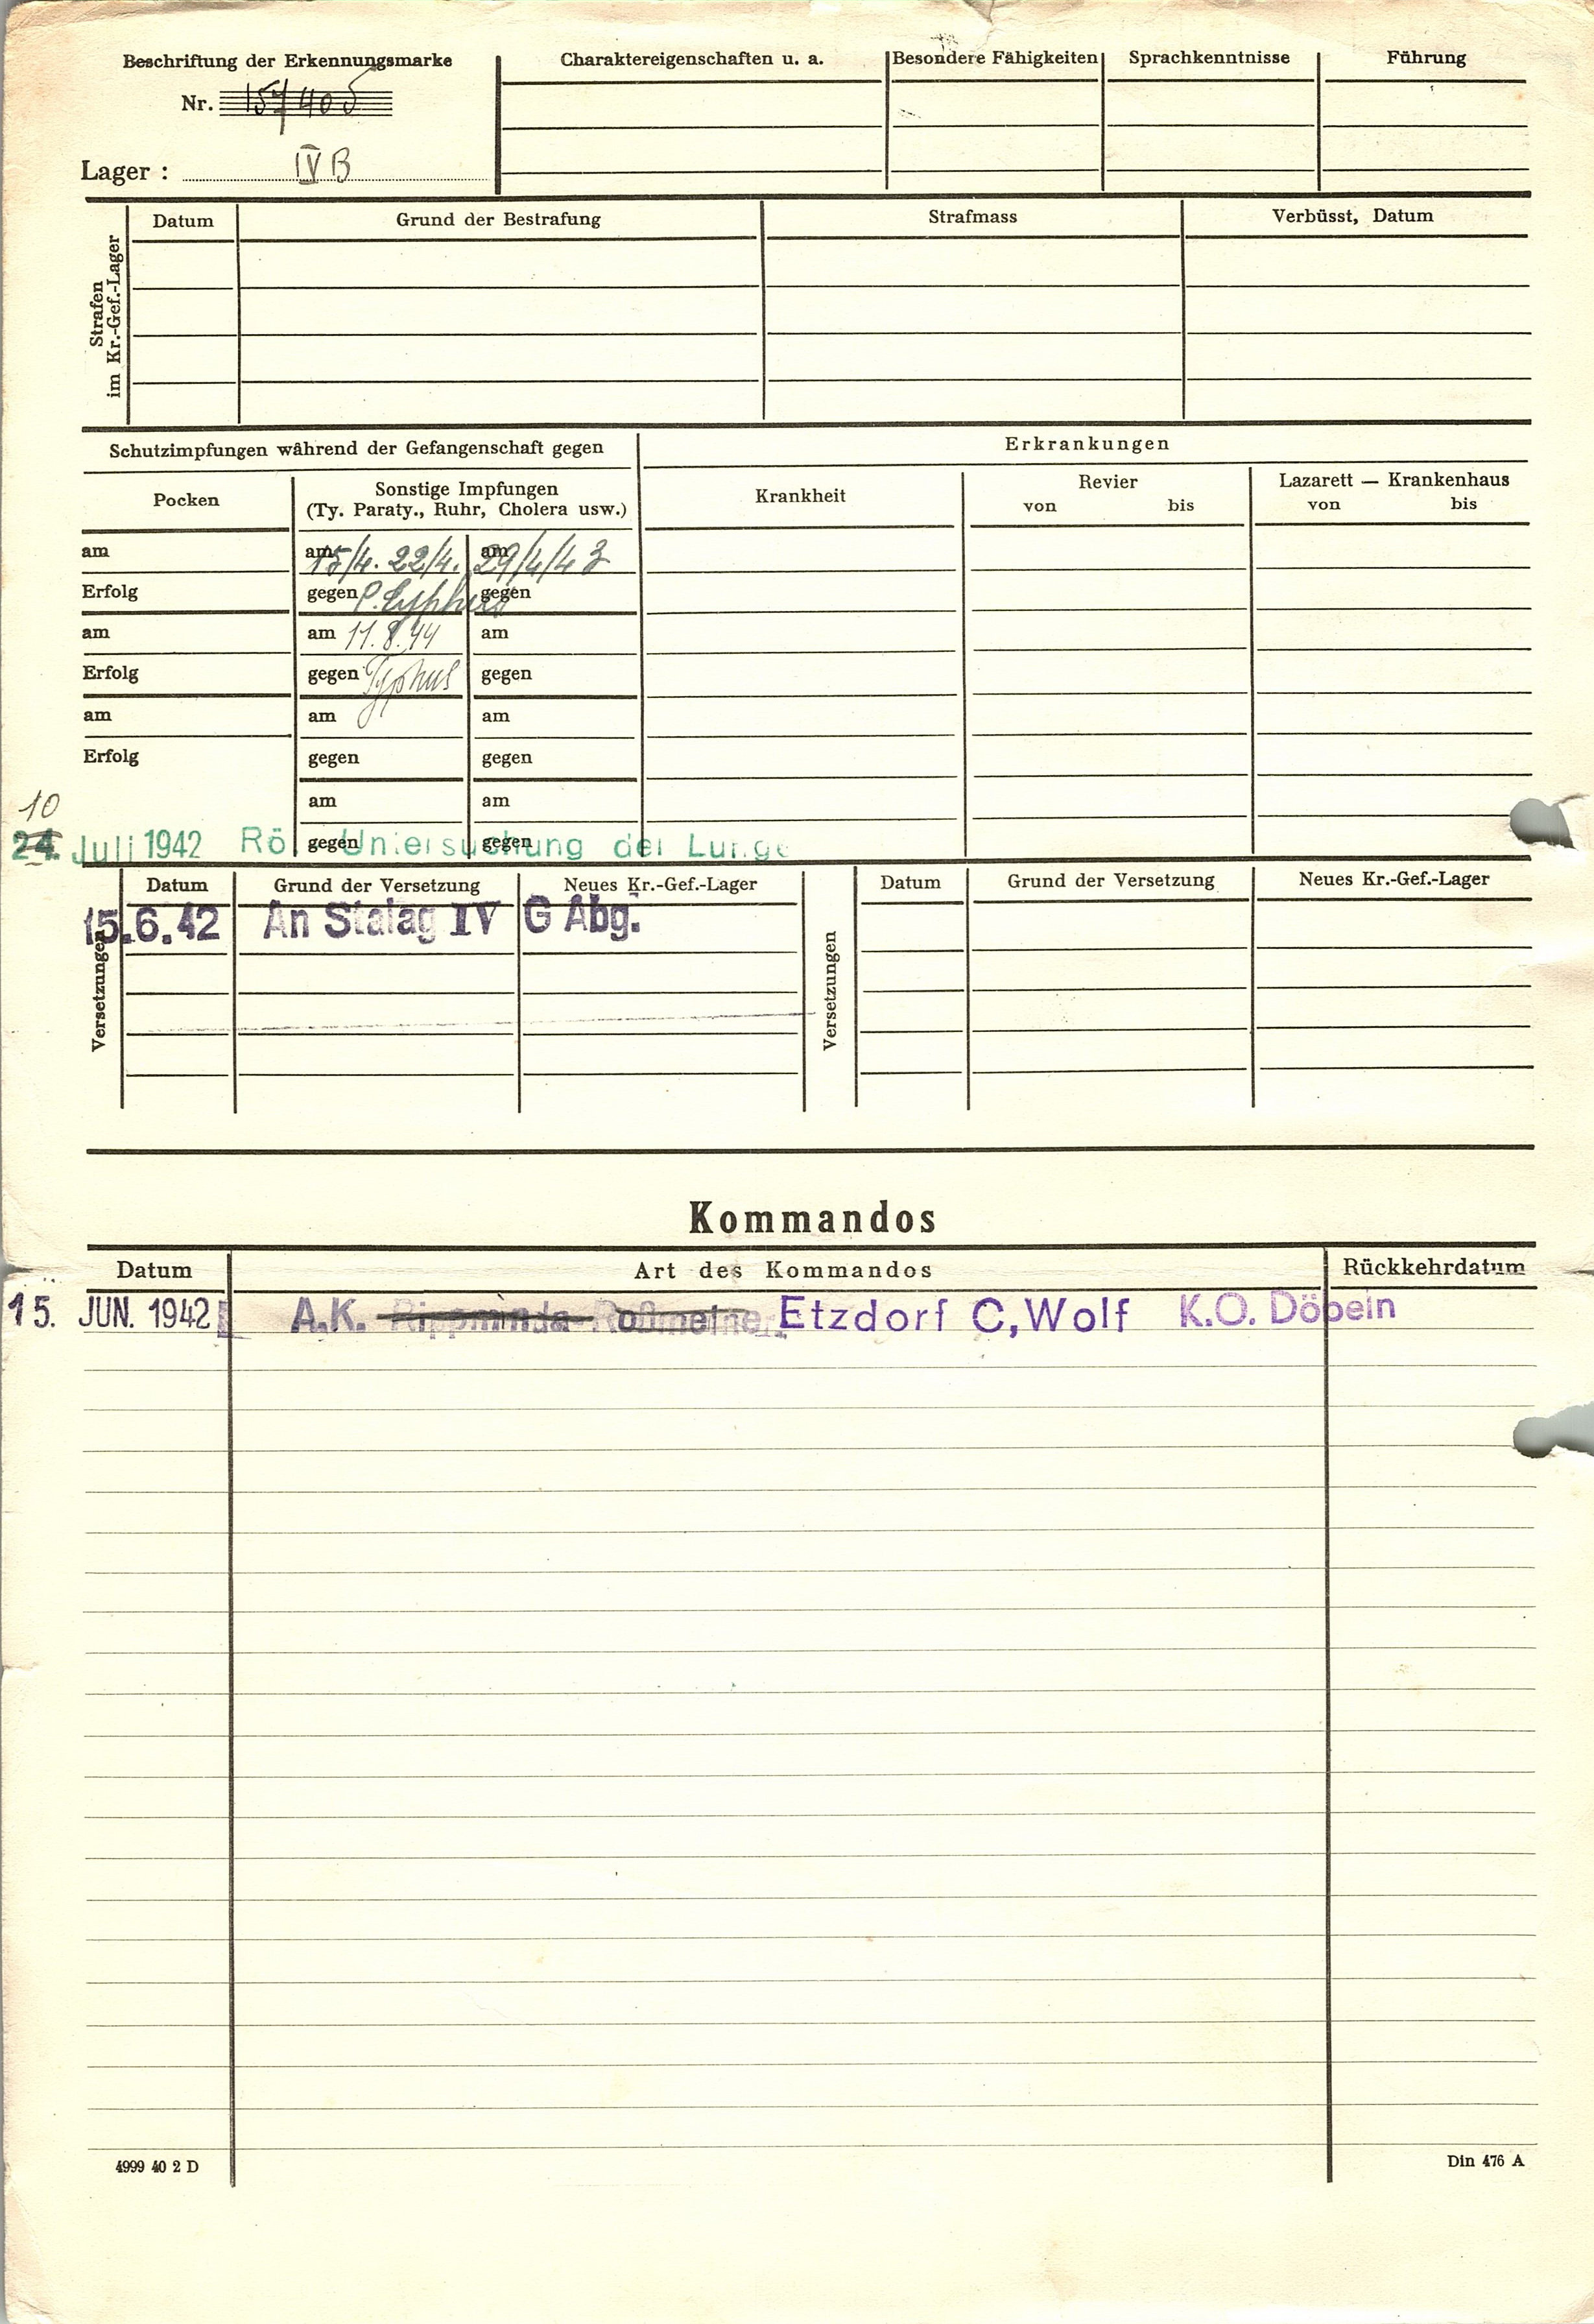 Beschriftung der Erkennungsmarke
Nr. 157405
Lager : IV B
Charaktereigenschaften u. a.
Besondere Fähigkeiten
Sprachkenntnisse
Führung
Strafen
im Kr.-Gef.-Lager
Datum
Grund der Bestrafung
Strafmass
Verbüsst, Datum
Schutzimpfungen während der Gefangenschaft gegen
Erkrankungen
Pocken
Sonstige Impfungen
(Ty. Paraty., Ruhr, Cholera usw.)
Krankheit
Revier
von bis
Lazarett — Krankenhaus
von bis
am am 15/4. 22/4. am 29/4/43
Erfolg gegen gegen
am am 11.8.44 am
Erfolg gegen Typhus gegen
am am am
Erfolg gegen gegen
am am
10
24. Juli 1942 Rö. Untersuchung der Lunge
gegen gegen
Versetzungen
Datum Grund der Versetzung Neues Kr.-Gef.-Lager
15.6.42 An Stalag IV G Abg.
Versetzungen
Datum Grund der Versetzung Neues Kr.-Gef.-Lager
Kommandos
Datum Art des Kommandos Rückkehrdatum
15. JUN. 1942 A.K. Etzdorf C,Wolf K.O. Döbeln
4999 40 2 D
Din 476 A